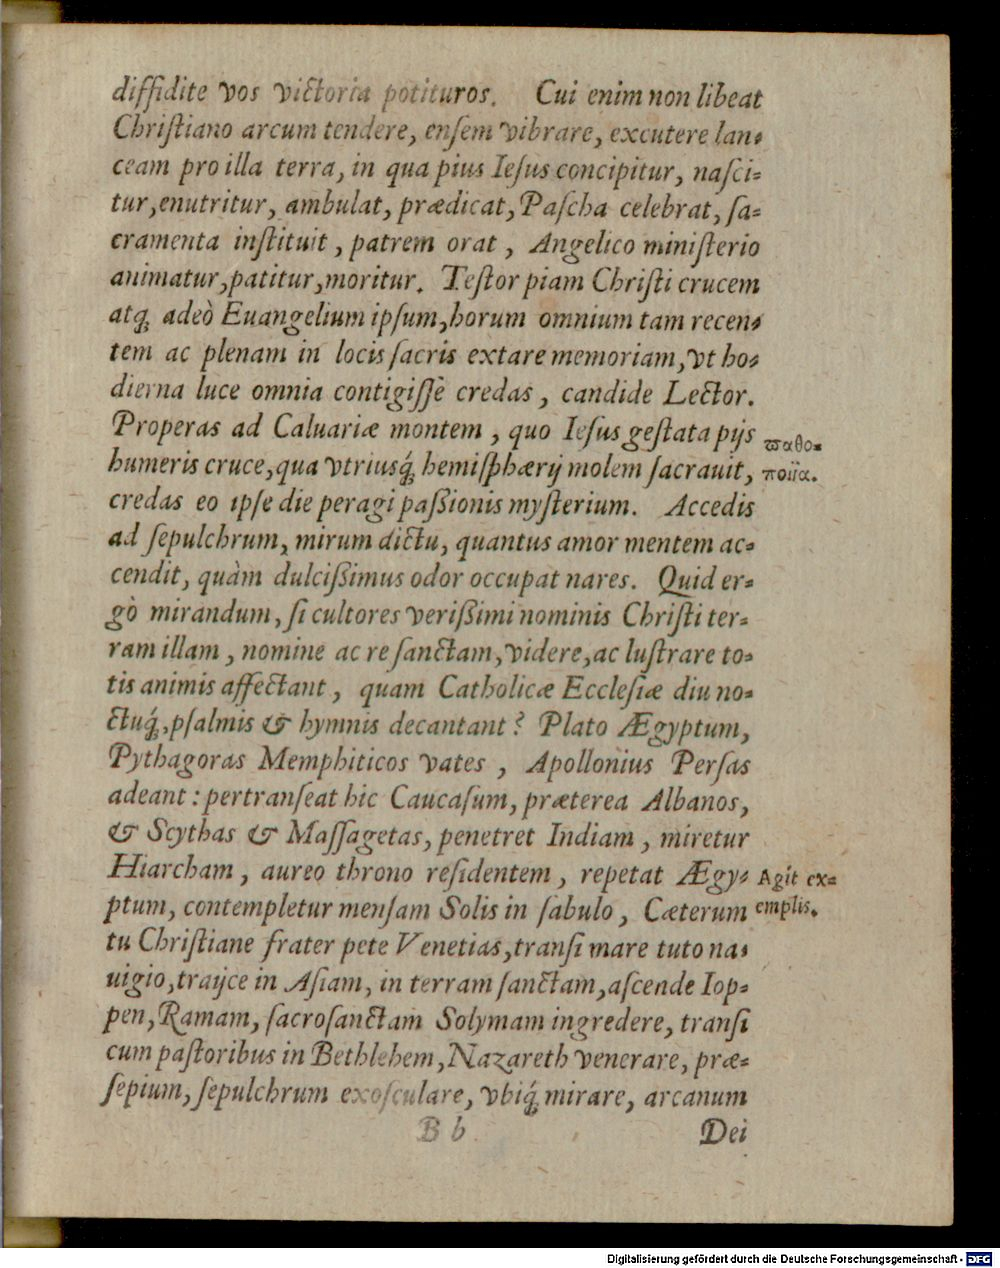 diſſidite vos victoria potituros. Cui enim non libeat
Chriſtiano arcum tendere, enſem vibrare, excutere lan-
ceam pro illa terra, in qua pius Ieſus concipitur, naſci-
tur, enutritur, ambulat, prædicat, Paſcha celebrat, ſa-
cramenta inſtituit, patrem orat, Angelico miniſterio
animatur, patitur, moritur. Teſtor piam Chriſti crucem
atq́; adeò Euangelium ipſum, horum omnium tam recen-
tem ac plenam in locis ſacris extare memoriam, vt ho-
dierna luce omnia contigiſſè credas, candide Lector.
Properas ad Caluariæ montem, quo Ieſus geſtata pijs
humeris cruce, qua vtriusq́; hemiſphærij molem ſacrauit,
credas eo ipſe die peragi paßionis myſterium. Accedis
ad ſepulchrum, mirum dictu, quantus amor mentem ac-
cendit, quàm dulcißimus odor occupat nares. Quid er-
gò mirandum, ſi cultores verißimi nominis Chriſti ter-
ram illam, nomine ac re ſanctam, videre, ac luſtrare to-
tis animis affectant, quam Catholicæ Eccleſiæ diu no-
ctuq́;, pſalmis & hymnis decantant? Plato Ægyptum,
Pythagoras Memphiticos vates, Apollonius Perſas
adeant: pertranſeat hic Caucaſum, præterea Albanos,
& Scythas & Maſſagetas, penetret Indiam, miretur
Hiarcham, aureo throno reſidentem, repetat Ægy-
ptum, contempletur menſam Solis in ſabulo, Cæterum
tu Chriſtiane frater pete Venetias, tranſi mare tuto na-
uigio, traijce in Aſiam, in terram ſanctam, aſcende Iop-
pen, Ramam, ſacroſanctam Solymam ingredere, tranſi
cum paſtoribus in Bethlehem, Nazareth venerare, præ-
ſepium, ſepulchrum exoſculare, vbiq́; mirare, arcanum
B b
Dei
ϖαθο-
ποιΐα.
Agit ex-
emplis.
Digitalisierung gefördert durch die Deutsche Forschungsgemeinschaft - DFG